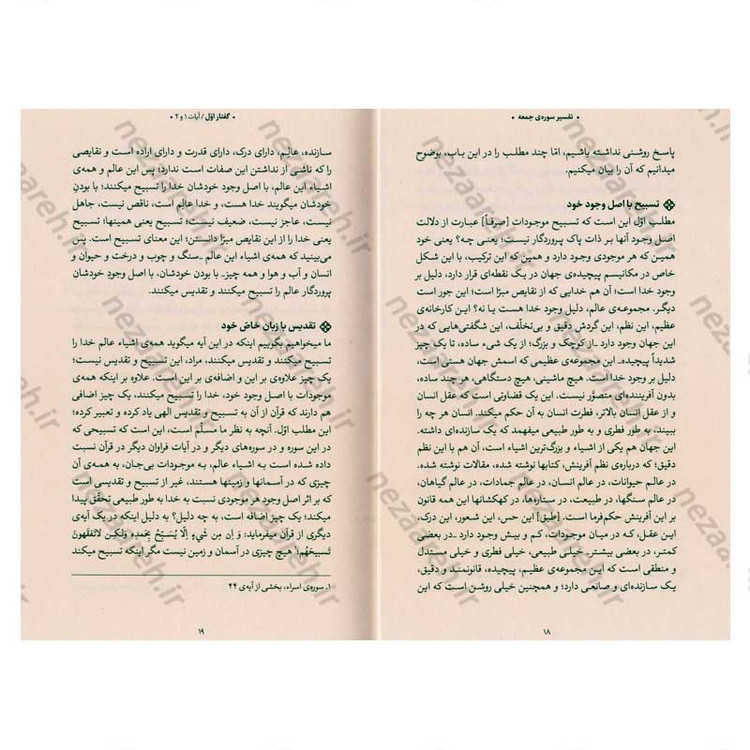 • تفسیر سوره‌ی جمعه •
پاسخ روشنی نداشته باشیم، امّا چند مطلب را در این باب، بوضوح
میدانیم که آن را بیان میکنیم.
تسبیح با اصل وجود خود
مطلب اوّل این است که تسبیح موجودات [صرفاً] عبارت از دلالت
اصل وجود آنها بر ذات پاک پروردگار نیست؛ یعنی چه؟ یعنی خود
همین که هر موجودی وجود دارد و همین که این ترکیب، با این شکل
خاص در مکانیسم پیچیده‌ی جهان در یک نقطه‌ای قرار دارد، دلیل بر
وجود خدا است؛ آن هم خدایی که از نقایص مبرّا است؛ این جور است
دیگر. مجموعه‌ی عالم، دلیل وجود خدا هست یا نه؟ این کارخانه‌ی
عظیم، این نظم، این گردش دقیق و بی‌تخلّف، این شگفتی‌هایی که در
این جهان وجود دارد ـ از کوچک و بزرگ؛ از یک شیء ساده، تا یک چیز
شدیداً پیچیده ـ این مجموعه‌ی عظیمی که اسمش جهان هستی است،
دلیل بر وجود خدا است. هیچ ماشینی، هیچ دستگاهی، هر چند ساده،
بدون آفریننده‌ای متصوّر نیست. این یک قضاوتی است که از عقل انسان
و از عقل انسان بالاتر، فطرت انسان به آن حکم میکند. انسان هر چه را
ببیند، به طور فطری و به طور طبیعی میفهمد که یک سازنده‌ای داشته.
این جهان هم یکی از اشیاء و بزرگ‌ترین اشیاء است، آن هم با این نظم
دقیق؛ که درباره‌ی نظم آفرینش، کتابها نوشته شده، مقالات نوشته شده.
در عالم حیوانات، در عالم انسان، در عالم جمادات، در عالم گیاهان،
در عالم سنگها، در طبیعت، در ستاره‌ها، در کهکشانها این همه قانون
بر این آفرینش حکم‌فرما است. [طبق] این حس، این شعور، این درک،
عقل میگوید، که در میان موجودات، کم و بیش وجود دارد ـ در بعضی
کمتر، در بعضی بیشتر ـ خیلی طبیعی، خیلی فطری و خیلی مستدل
و منطقی است که این مجموعه‌ی عظیم، پیچیده، قانونمند و دقیق،
یک سازنده‌ای و صانعی دارد؛ و همچنین خیلی روشن است که این
۱۸
• گفتار اوّل / آیات ۱ و ۲ •
سازنده، عالِم، دارای درک، دارای قدرت و دارای اراده است و نقایصی
را که ناشی از نداشتن این صفات است ندارد؛ پس این عالم و همه‌ی
اشیاء این عالم، با اصل وجود خودشان خدا را تسبیح میکنند؛ با بودنِ
خودشان میگویند خدا هست، و خدا ناقص نیست، جاهل
نیست، عاجز نیست، ضعیف نیست؛ تسبیح یعنی همینها؛ تسبیح
یعنی خدا را از این نقایص مبرّا دانستن؛ این معنای تسبیح است. پس
می‌بینید که همه‌ی اشیاء این عالم ـ سنگ و چوب و درخت و حیوان و
انسان و آب و هوا و همه چیز ـ با بودن خودشان، با اصل وجود خودشان
پروردگار عالم را تسبیح میکنند و تقدیس میکنند.
تقدیس با زبان خاصّ خود
ما میخواهیم بگوییم اینکه در این آیه میگوید همه‌ی اشیاء عالم خدا را
تسبیح میکنند و تقدیس میکنند، مراد، این تسبیح و تقدیس نیست؛
یک چیز علاوه‌ی بر این و اضافه‌ی بر این است. علاوه بر اینکه همه‌ی
موجودات با اصل وجود خود، خدا را تسبیح میکنند، یک چیز اضافی
هم دارند که قرآن از آن به تسبیح و تقدیس الهی یاد کرده و تعبیر کرده؛
این مطلب اوّل. آنچه به نظر ما مسلّم است، این است که تسبیحی که
در این سوره و در سوره‌های دیگر و در آیات فراوان دیگر در قرآن نسبت
داده شده است به اشیاء عالم، به موجودات بی‌جان، به همه‌ی آن
چیزی که در آسمانها و زمینها هستند، غیر از تسبیح و تقدیسی است
که بر اثر اصل وجود هر موجودی نسبت به خدا به طور طبیعی تحقّق پیدا
میکند؛ یک چیز اضافه است، به چه دلیل؟ به دلیل اینکه در یک آیه‌ی
دیگری از قرآن میفرماید: وَ اِن مِن شَیءٍ اِلّا یُسَبِّحُ بِحَمدِه وَلکِن لاتَفقَهونَ
تَسبیحَهُم؛۱ هیچ چیزی در آسمان و زمین نیست مگر اینکه تسبیح میکند
۱. سوره‌ی اسراء، بخشی از آیه‌ی ۴۴
۱۹
nezaareh.ir